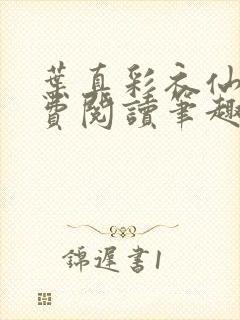 葉真彩衣仙
費閱讀筆趣
錦遲書1